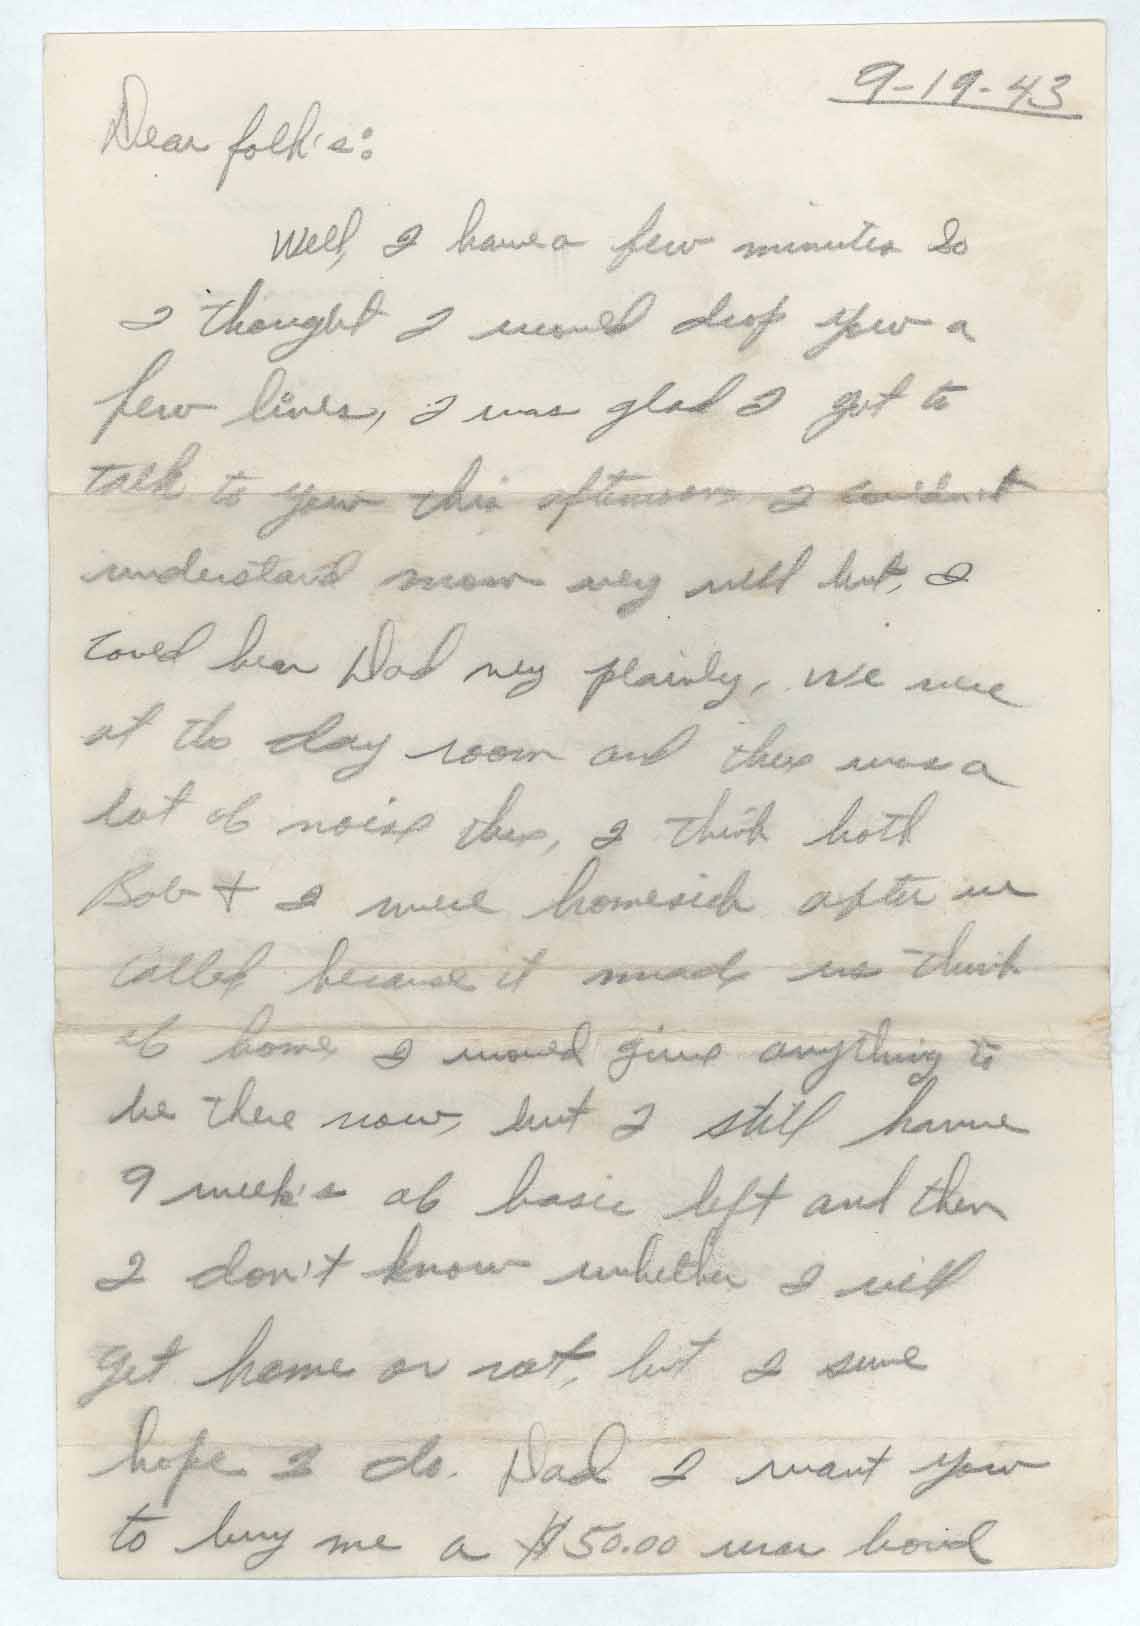 9-19-43
Dear folk's:
Well, I have a few minutes so
I thought I would drop you a
few lines, I was glad I got to
talk to you this afternoon I couldn't
understand mom very well but, I
could hear Dad very plainly, We were
at the day room and there was a
lot of noise there, I think both
Bob + I were homesick after we
called because it made us think
of home I would give anything to
be there now, but I still have
9 week's of basic left and then
I don't know whether I will
get home or not, but I sure
hope I do. Dad I want you
to buy me a $50.00 war bond